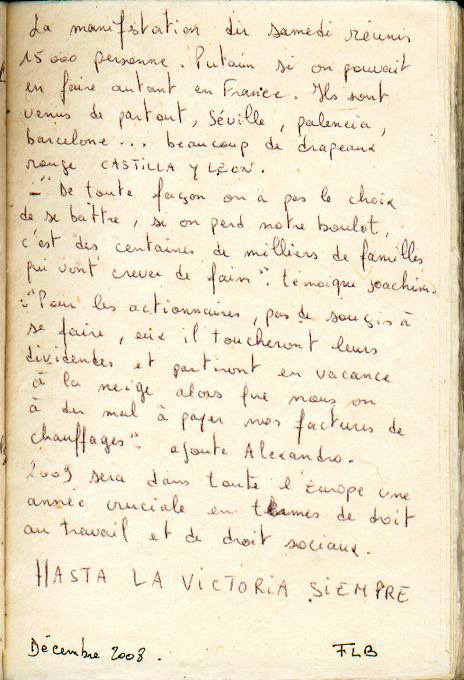 La manifstation du samedi réunis
15 000 personne. Putain si on pouvait
en faire autant en France. Ils sont
venus de partout, Séville, palencia,
barcelone... beaucoup de drapeaux
rouge CASTILLA Y LEON.
- "De toute façon on a pas le choix
de se battre, si on perd notre boulot,
c'est des centaines de milliers de familles
qui vont crever de faim". témoigne Joachim.
- "Pour les actionnaires, pas de soucis à
se faire, eux il toucheront leurs
dividendes et partiront en vacance
à la neige alors que nous on
à du mal à payer nos factures de
chauffages" ajoute Alexandro.
2009 sera dans toute l'Europe une
année cruciale en termes de droit
au travail et de droit sociaux.
HASTA LA VICTORIA SIEMPRE
Décembre 2008.
FLB